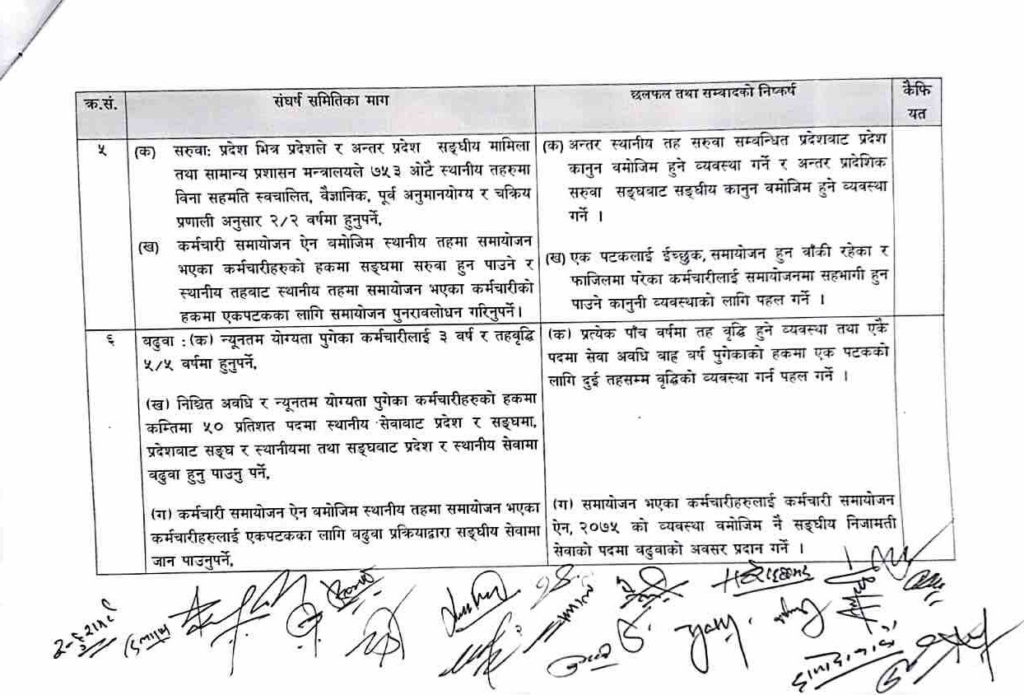 क्र.सं.
संघर्ष समितिका माग
छलफल तथा सम्वादको निष्कर्ष
कैफि
यत
५
(क) सरुवाः प्रदेश भित्र प्रदेशले र अन्तर प्रदेश सङ्घीय मामिला
तथा सामान्य प्रशासन मन्त्रालयले ७५३ ओटै स्थानीय तहरुमा
विना सहमति स्वचालित, वैज्ञानिक, पूर्व अनुमानयोग्य र चक्रिय
प्रणाली अनुसार २/२ वर्षमा हुनुपर्ने,
(ख) कर्मचारी समायोजन ऐन बमोजिम स्थानीय तहमा समायोजन
भएका कर्मचारीहरुको हकमा सङ्घमा सरुवा हुन पाउने र
स्थानीय तहबाट स्थानीय तहमा समायोजन भएका कर्मचारीको
हकमा एकपटकका लागि समायोजन पुनरावलोधन गरिनुपर्ने।
(क) अन्तर स्थानीय तह सरुवा सम्बन्धित प्रदेशबाट प्रदेश
कानुन बमोजिम हुने व्यवस्था गर्ने र अन्तर प्रादेशिक
सरुवा सङ्घबाट सङ्घीय कानुन बमोजिम हुने व्यवस्था
गर्ने ।
(ख) एक पटकलाई ईच्छुक, समायोजन हुन बाँकी रहेका र
फाजिलमा परेका कर्मचारीलाई समायोजनमा सहभागी हुन
पाउने कानुनी व्यवस्थाको लागि पहल गर्ने ।
६
बढुवा : (क) न्यूनतम योग्यता पुगेका कर्मचारीलाई ३ वर्ष र तहवृद्धि
५/५ वर्षमा हुनुपर्ने,
(ख) निश्चित अवधि र न्यूनतम योग्यता पुगेका कर्मचारीहरुको हकमा
कम्तिमा ५० प्रतिशत पदमा स्थानीय सेवाबाट प्रदेश र सङ्घमा,
प्रदेशबाट सङ्घ र स्थानीयमा तथा सङ्घबाट प्रदेश र स्थानीय सेवामा
बढुवा हुनु पाउनु पर्ने,
(ग) कर्मचारी समायोजन ऐन बमोजिम स्थानीय तहमा समायोजन भएका
कर्मचारीहरुलाई एकपटकका लागि बढुवा प्रक्रियाद्वारा सङ्घीय सेवामा
जान पाउनुपर्ने,
(क) प्रत्येक पाँच वर्षमा तह वृद्धि हुने व्यवस्था तथा एकै
पदमा सेवा अवधि बाह्र वर्ष पुगेकाको हकमा एक पटकको
लागि दुई तहसम्म वृद्धिको व्यवस्था गर्न पहल गर्ने ।
(ग) समायोजन भएका कर्मचारीहरुलाई कर्मचारी समायोजन
ऐन, २०७५ को व्यवस्था बमोजिम नै सङ्घीय निजामती
सेवाको पदमा बढुवाको अवसर प्रदान गर्ने ।